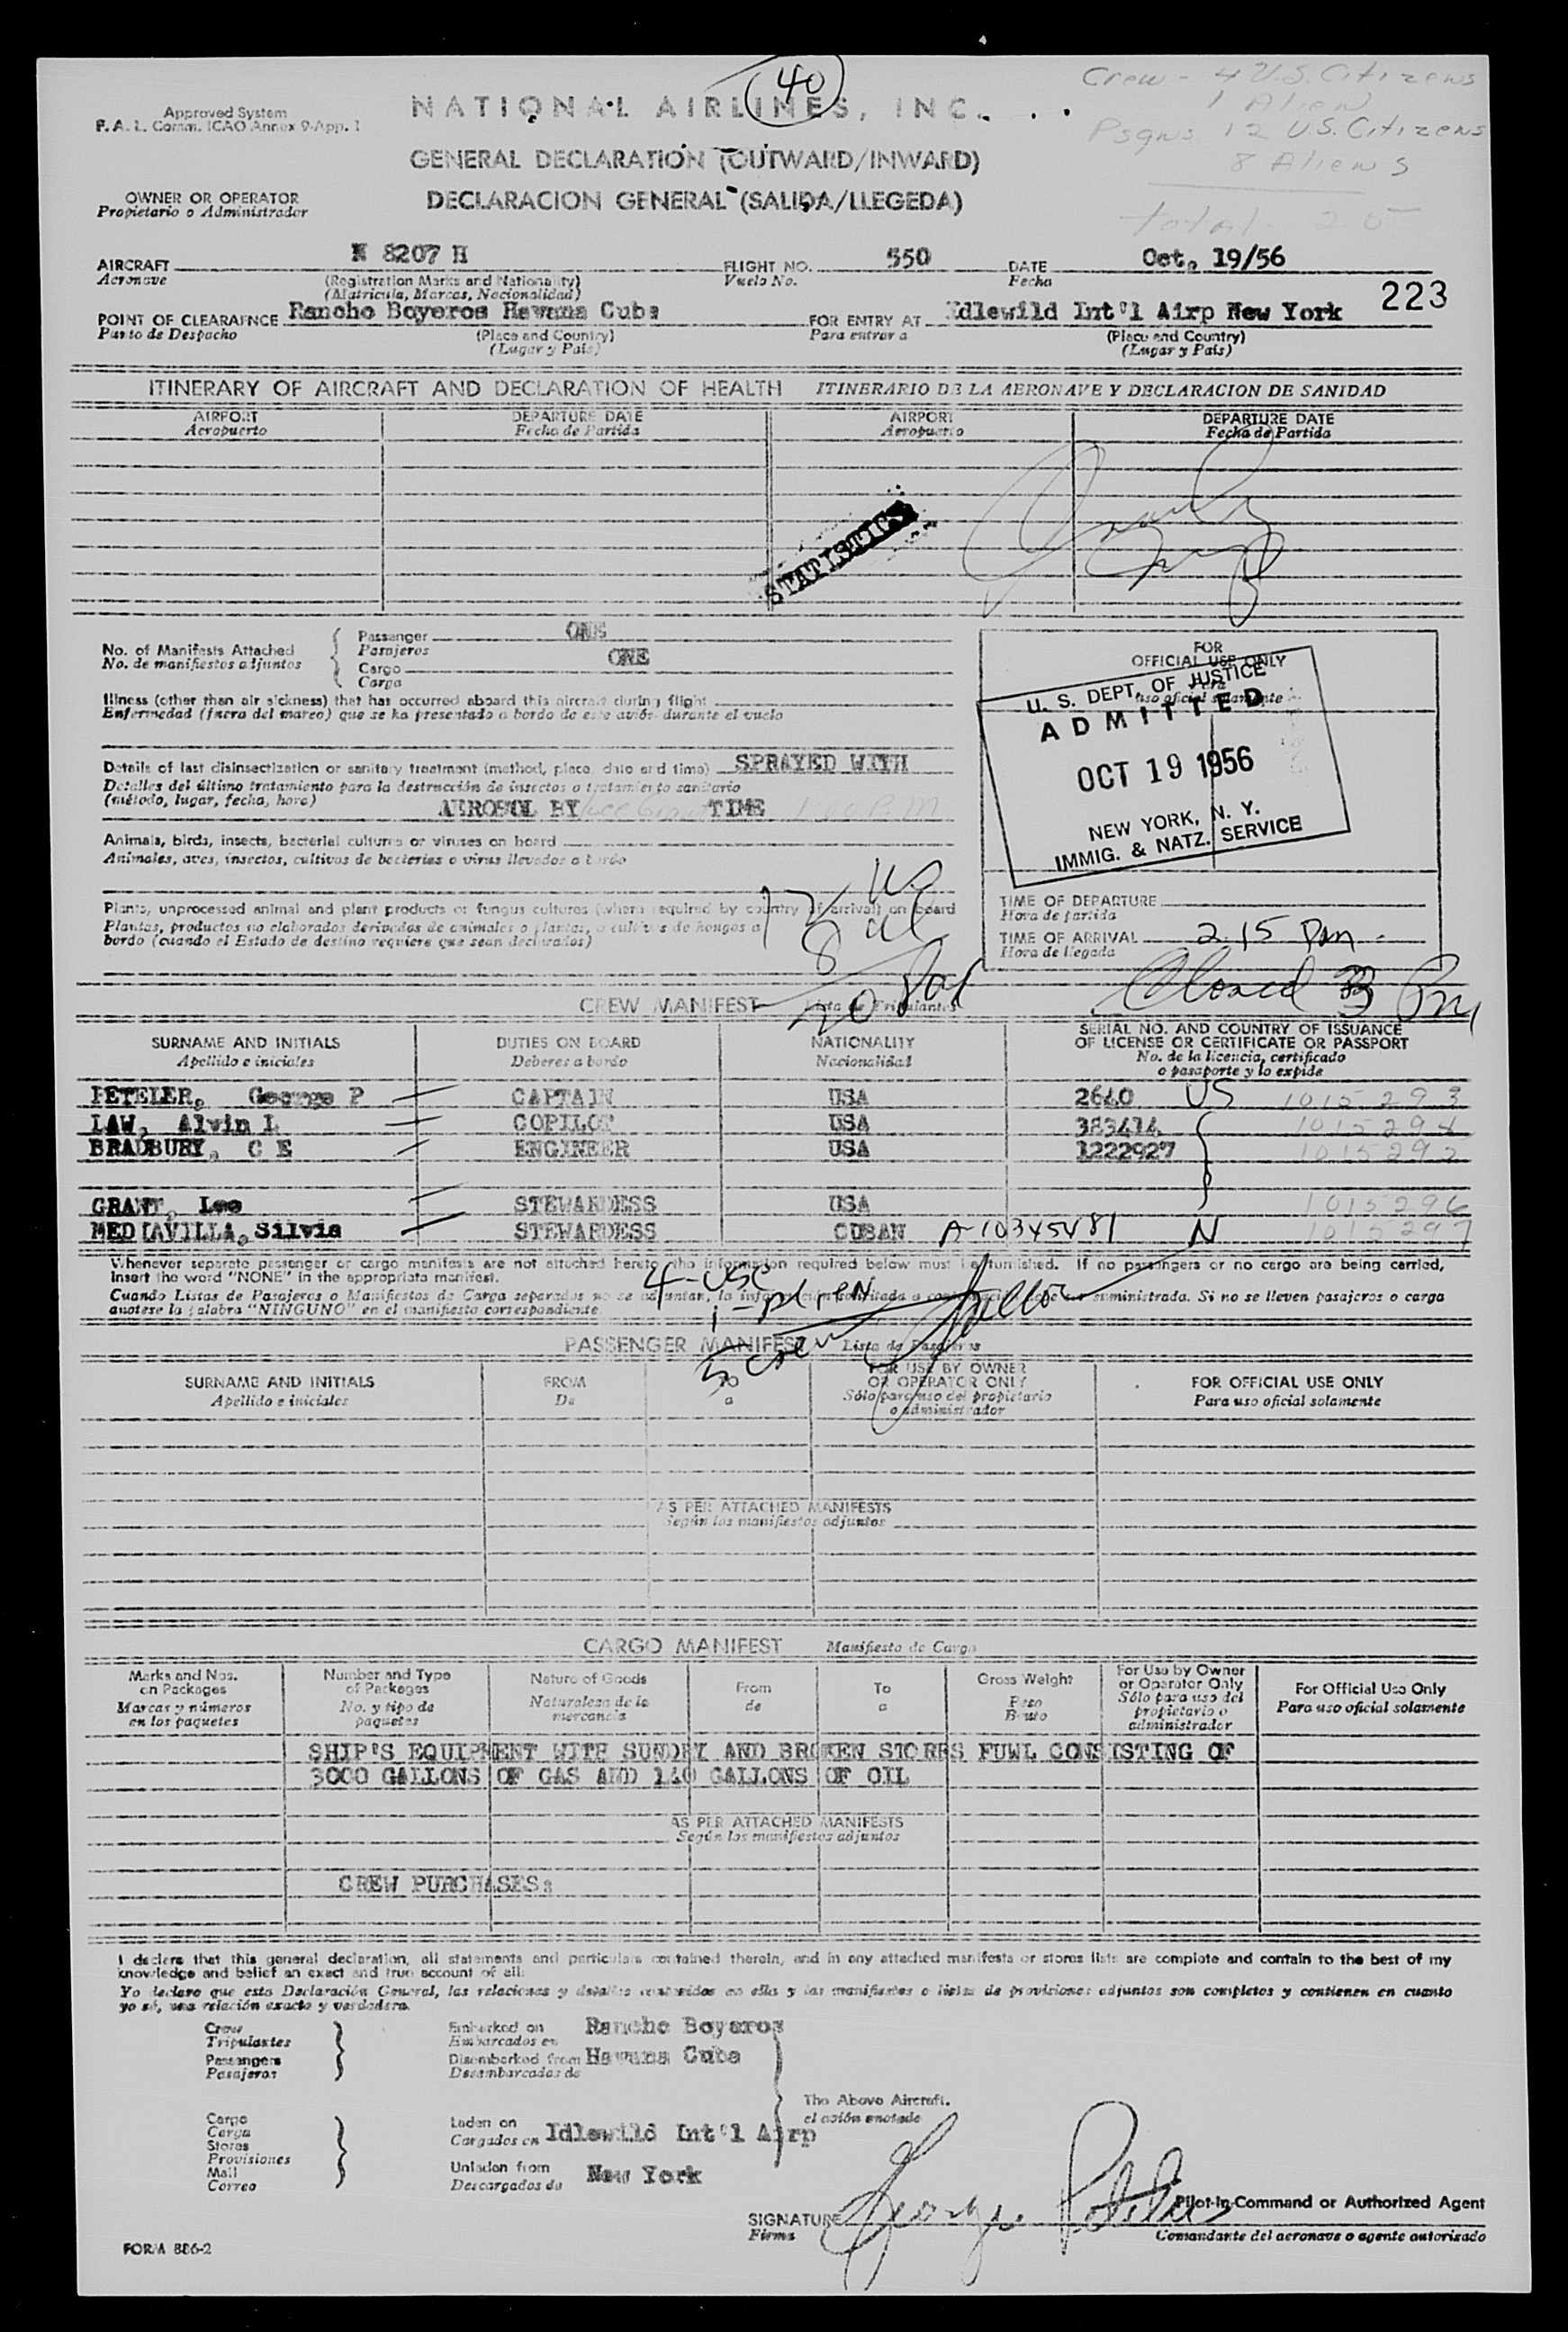 40
Crew - 4 U.S. Citizens
1 Alien
Psgns 12 U.S. Citizens
8 Aliens
total - 25
Approved System
F. A. L. Comm. ICAO Annex 9-App. 1
NATIONAL AIRLINES, INC.
GENERAL DECLARATION (OUTWARD/INWARD)
OWNER OR OPERATOR
Propietario o Administrador
DECLARACION GENERAL (SALIDA/LLEGEDA)
AIRCRAFT N 8207 H FLIGHT NO. 550 DATE Oct. 19/56
Aeronave (Registration Marks and Nationality) Vuelo No. Fecha
(Matricula, Marcas, Nacionalidad)
223
POINT OF CLEARAFNCE Rancho Boyeros Havana Cuba FOR ENTRY AT Idlewild Int'l Airp New York
Punto de Despacho (Place and Country) Para entrar a (Place and Country)
(Lugar y Pais) (Lugar y Pais)
ITINERARY OF AIRCRAFT AND DECLARATION OF HEALTH ITINERARIO DE LA AERONAVE Y DECLARACION DE SANIDAD
AIRPORT DEPARTURE DATE AIRPORT DEPARTURE DATE
Aeropuerto Fecha de Partida Aeropuerto Fecha de Partida
STATISTICS
No. of Manifests Attached Passenger ONE
No. de manifiestos adjuntos Pasajeros
Cargo ONE
Carga
FOR
OFFICIAL USE ONLY
Para
uso oficial solamente
U. S. DEPT. OF JUSTICE
ADMITTED
OCT 19 1956
NEW YORK, N. Y.
IMMIG. & NATZ. SERVICE
Illness (other than air sickness) that has occurred aboard this aircraft during flight
Enfermedad (fuera del mareo) que se ha presentado a bordo de este avión durante el vuelo
Details of last disinsectization or sanitary treatment (method, place, date and time) SPRAYED WITH
Detalles del último tratamiento para la destrucción de insectos o tratamiento sanitario
(método, lugar, fecha, hora) AEROSOL BY Lee Grant TIME 1:00 P.M
Animals, birds, insects, bacterial cultures or viruses on board
Animales, aves, insectos, cultivos de bacterias o virus llevados a bordo
Plants, unprocessed animal and plant products or fungus cultures (where required by country of arrival) on board
Plantas, productos no elaborados derivados de animales o plantas, o cultivos de hongos a
bordo (cuando el Estado de destino requiere que sean declarados)
TIME OF DEPARTURE
Hora de partida
TIME OF ARRIVAL 2.15 Pm
Hora de llegada
Closed 3 Pm
CREW MANIFEST Lista de Tripulantes
SURNAME AND INITIALS DUTIES ON BOARD NATIONALITY SERIAL NO. AND COUNTRY OF ISSUANCE
OF LICENSE OR CERTIFICATE OR PASSPORT
Apellido e iniciales Deberes a bordo Nacionalidad No. de la licencia, certificado
o pasaporte y lo expide
PETELER, George P CAPTAIN USA 2640 US 1015293
LAW, Alvin L COPILOT USA 383414 1015294
BRADBURY, C E ENGINEER USA 1222927 1015292
GRANT, Lee STEWARDESS USA 1015296
MEDIAVILLA, Silvia STEWARDESS CUBAN A-10345481 N 1015297
Whenever separate passenger or cargo manifests are not attached hereto, the information required below must be furnished. If no passengers or no cargo are being carried,
insert the word "NONE" in the appropriate manifest.
Cuando Listas de Pasajeros o Manifiestos de Carga separados no se adjuntan, la información solicitada a continuación debe ser suministrada. Si no se lleven pasajeros o carga
anotese la palabra "NINGUNO" en el manifiesto correspondiente.
4-USC
1-Alien
5 crew
PASSENGER MANIFEST Lista de Pasajeros
SURNAME AND INITIALS FROM TO FOR USE BY OWNER
OR OPERATOR ONLY FOR OFFICIAL USE ONLY
Apellido e iniciales De a Sólo para uso del propietario
o administrador Para uso oficial solamente
AS PER ATTACHED MANIFESTS
Según los manifiestos adjuntos
CARGO MANIFEST Manifiesto de Carga
Marks and Nos.
on Packages
Marcas y números
en los paquetes
Number and Type
of Packages
No. y tipo de
paquetes
Nature of Goods
Naturaleza de la
mercancia
From
de
To
a
Gross Weight
Peso
Bruto
For Use by Owner
or Operator Only
Sólo para uso del
propietario o
administrador
For Official Use Only
Para uso oficial solamente
SHIP'S EQUIPMENT WITH SUNDRY AND BROKEN STORES FUWL CONSISTING OF
3000 GALLONS OF GAS AND 140 GALLONS OF OIL
AS PER ATTACHED MANIFESTS
Según los manifiestos adjuntos
CREW PURCHASES:
I declare that this general declaration, all statements and particulars contained therein, and in any attached manifests or stores lists are complete and contain to the best of my
knowledge and belief an exact and true account of all:
Yo declaro que esta Declaración General, las relaciones y detalles contenidos en ella y las manifiestos o listas de provisiones adjuntos son completos y contienen en cuanto
yo sé, una relación exacta y verdadera.
Crew Embarked on Rancho Boyeros
Tripulantes Embarcados en
Passengers Disembarked from Havana Cuba
Pasajeros Desembarcados de
The Above Aircraft.
el avión anotado
Cargo Laden on Idlewild Int'l Airp
Carga Cargados en
Stores
Provisiones
Mail Unladen from New York
Correo Descargados de
SIGNATURE George Peteler Pilot-in-Command or Authorized Agent
Firma Comandante del aeronave o agente autorizado
FORM 886-2